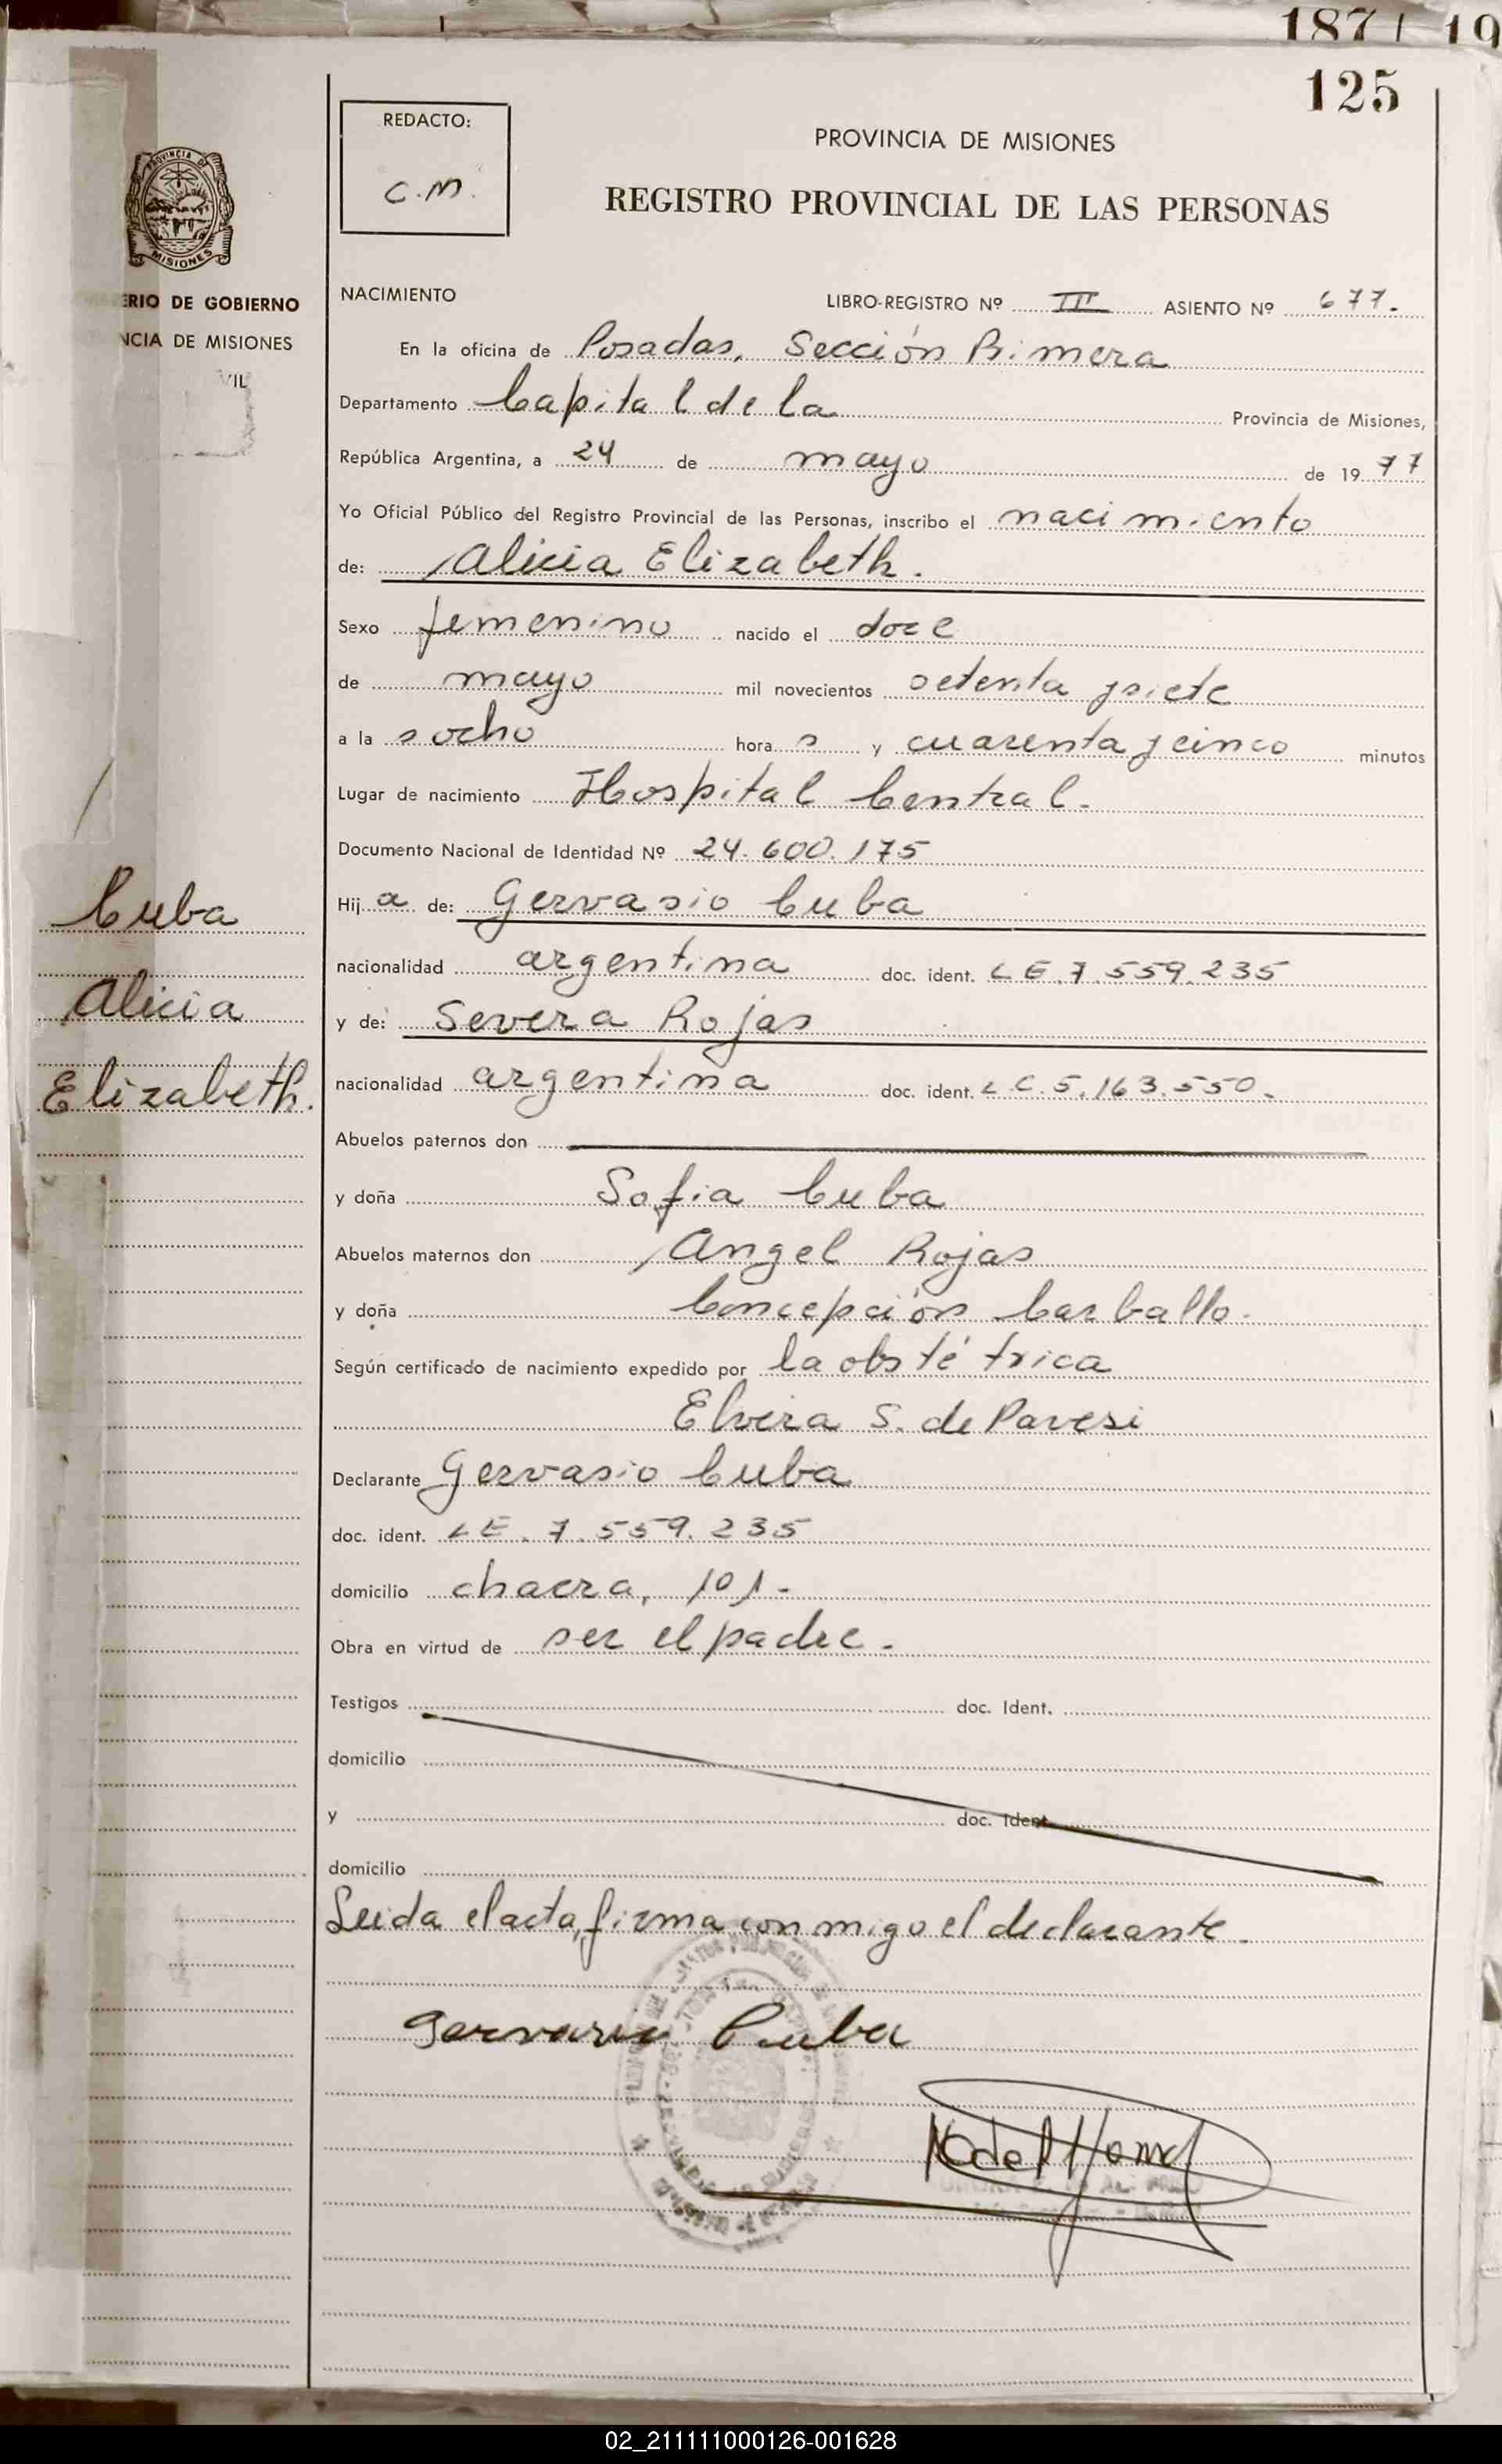 187 19
125
REDACTO:
C.M.
PROVINCIA DE MISIONES
REGISTRO PROVINCIAL DE LAS PERSONAS
PROVINCIA DE
MISIONES
ERIO DE GOBIERNO
NCIA DE MISIONES
VIL
NACIMIENTO LIBRO-REGISTRO Nº III ASIENTO Nº 677.
En la oficina de Posadas, Sección Primera
Departamento Capital de la Provincia de Misiones,
República Argentina, a 24 de mayo de 1977
Yo Oficial Público del Registro Provincial de las Personas, inscribo el nacimiento
de: Alicia Elizabeth.
Sexo femenino nacido el doce
de mayo mil novecientos setenta y siete
a la s ocho hora s y cuarenta y cinco minutos
Lugar de nacimiento Hospital Central.
Documento Nacional de Identidad Nº 24.600.175
Cuba
Hij a de: Gervasio Cuba
nacionalidad argentina doc. ident. LE.7.559.235
Alicia
y de: Severa Rojas
Elizabeth.
nacionalidad argentina doc. ident. L C.5.163.550.
Abuelos paternos don
y doña Sofia Cuba
Abuelos maternos don Angel Rojas
y doña Concepción Carballo.
Según certificado de nacimiento expedido por la obstétrica
Elvira S. de Pavesi
Declarante Gervasio Cuba
doc. ident. LE. 7.559.235
domicilio chacra, 101.
Obra en virtud de ser el padre.
Testigos doc. Ident.
domicilio
y doc. Ident.
domicilio
Leida el acta, firma conmigo el declarante.
Gervasio Cuba
02_211111000126-001628